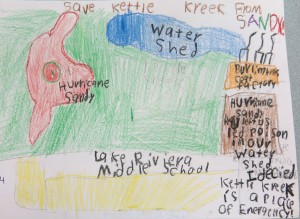 Save Kettle Kreek From
SANDY
Water
Shed
Hurricane
Sandy
factory
Hurricane
Sandy
poison
in our
water
shed
I decied
Kettle Kreek
is a place
Of Emergency
Lake Riviera
Middle School